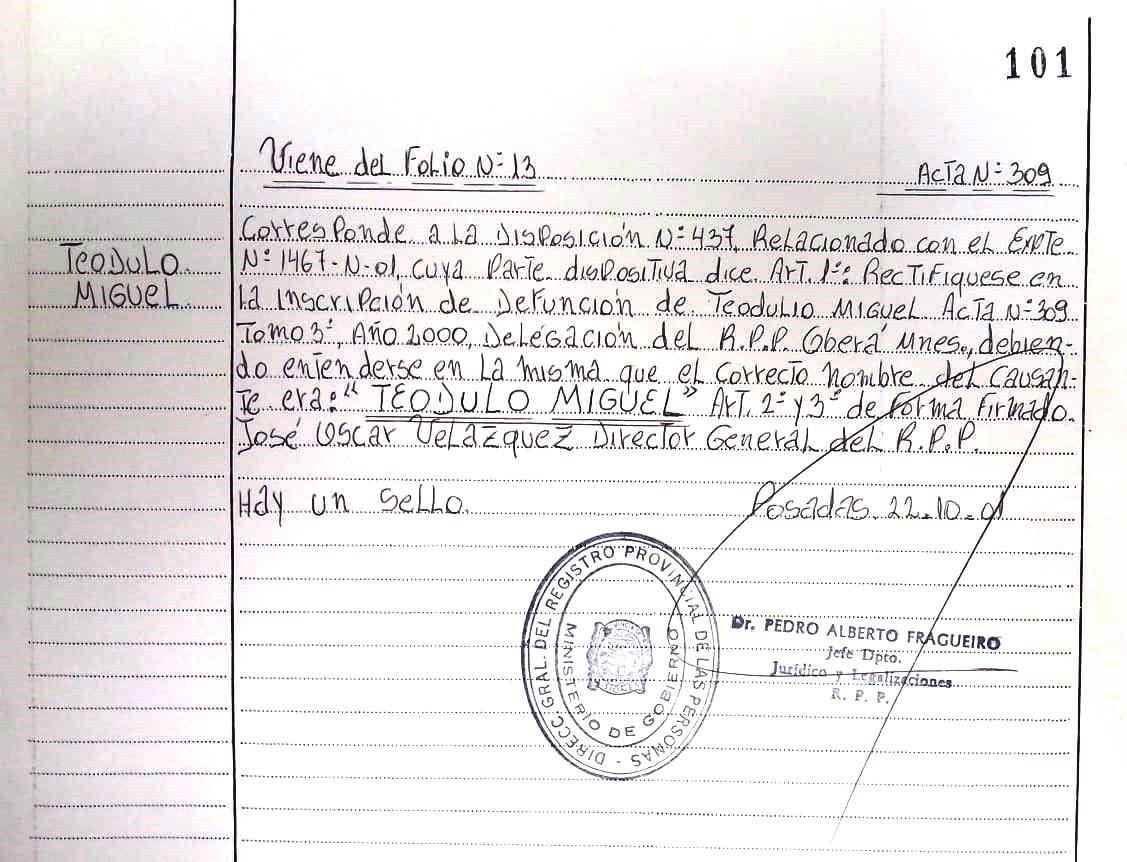 101
Viene del Folio N:13
Acta N: 309
TEODULO
MIGUEL
Corresponde a la Disposición N: 437, Relacionado con el Expte.
N: 1467-N-01, cuya Parte dispositiva dice Art. 1º: Rectifiquese en
la inscripción de Defunción de Teodulio Miguel Acta N: 309
Tomo 3º, Año 2000, Delegación del R.P.P. Oberá Mnes., debien-
do entenderse en la misma que el correcto nombre del causan-
te era: “TEODULO MIGUEL” Art. 2º y 3º de forma firmado.
José Oscar Velazquez Director General del R.P.P.
Hay un sello.
Posadas 22-10-01
DIRECC. GRAL. DEL REGISTRO PROVINCIAL DE LAS PERSONAS -
MINISTERIO DE GOBIERNO
Dr. PEDRO ALBERTO FRAGUEIRO
Jefe Dpto.
Jurídico y Legalizaciones
R. P. P.